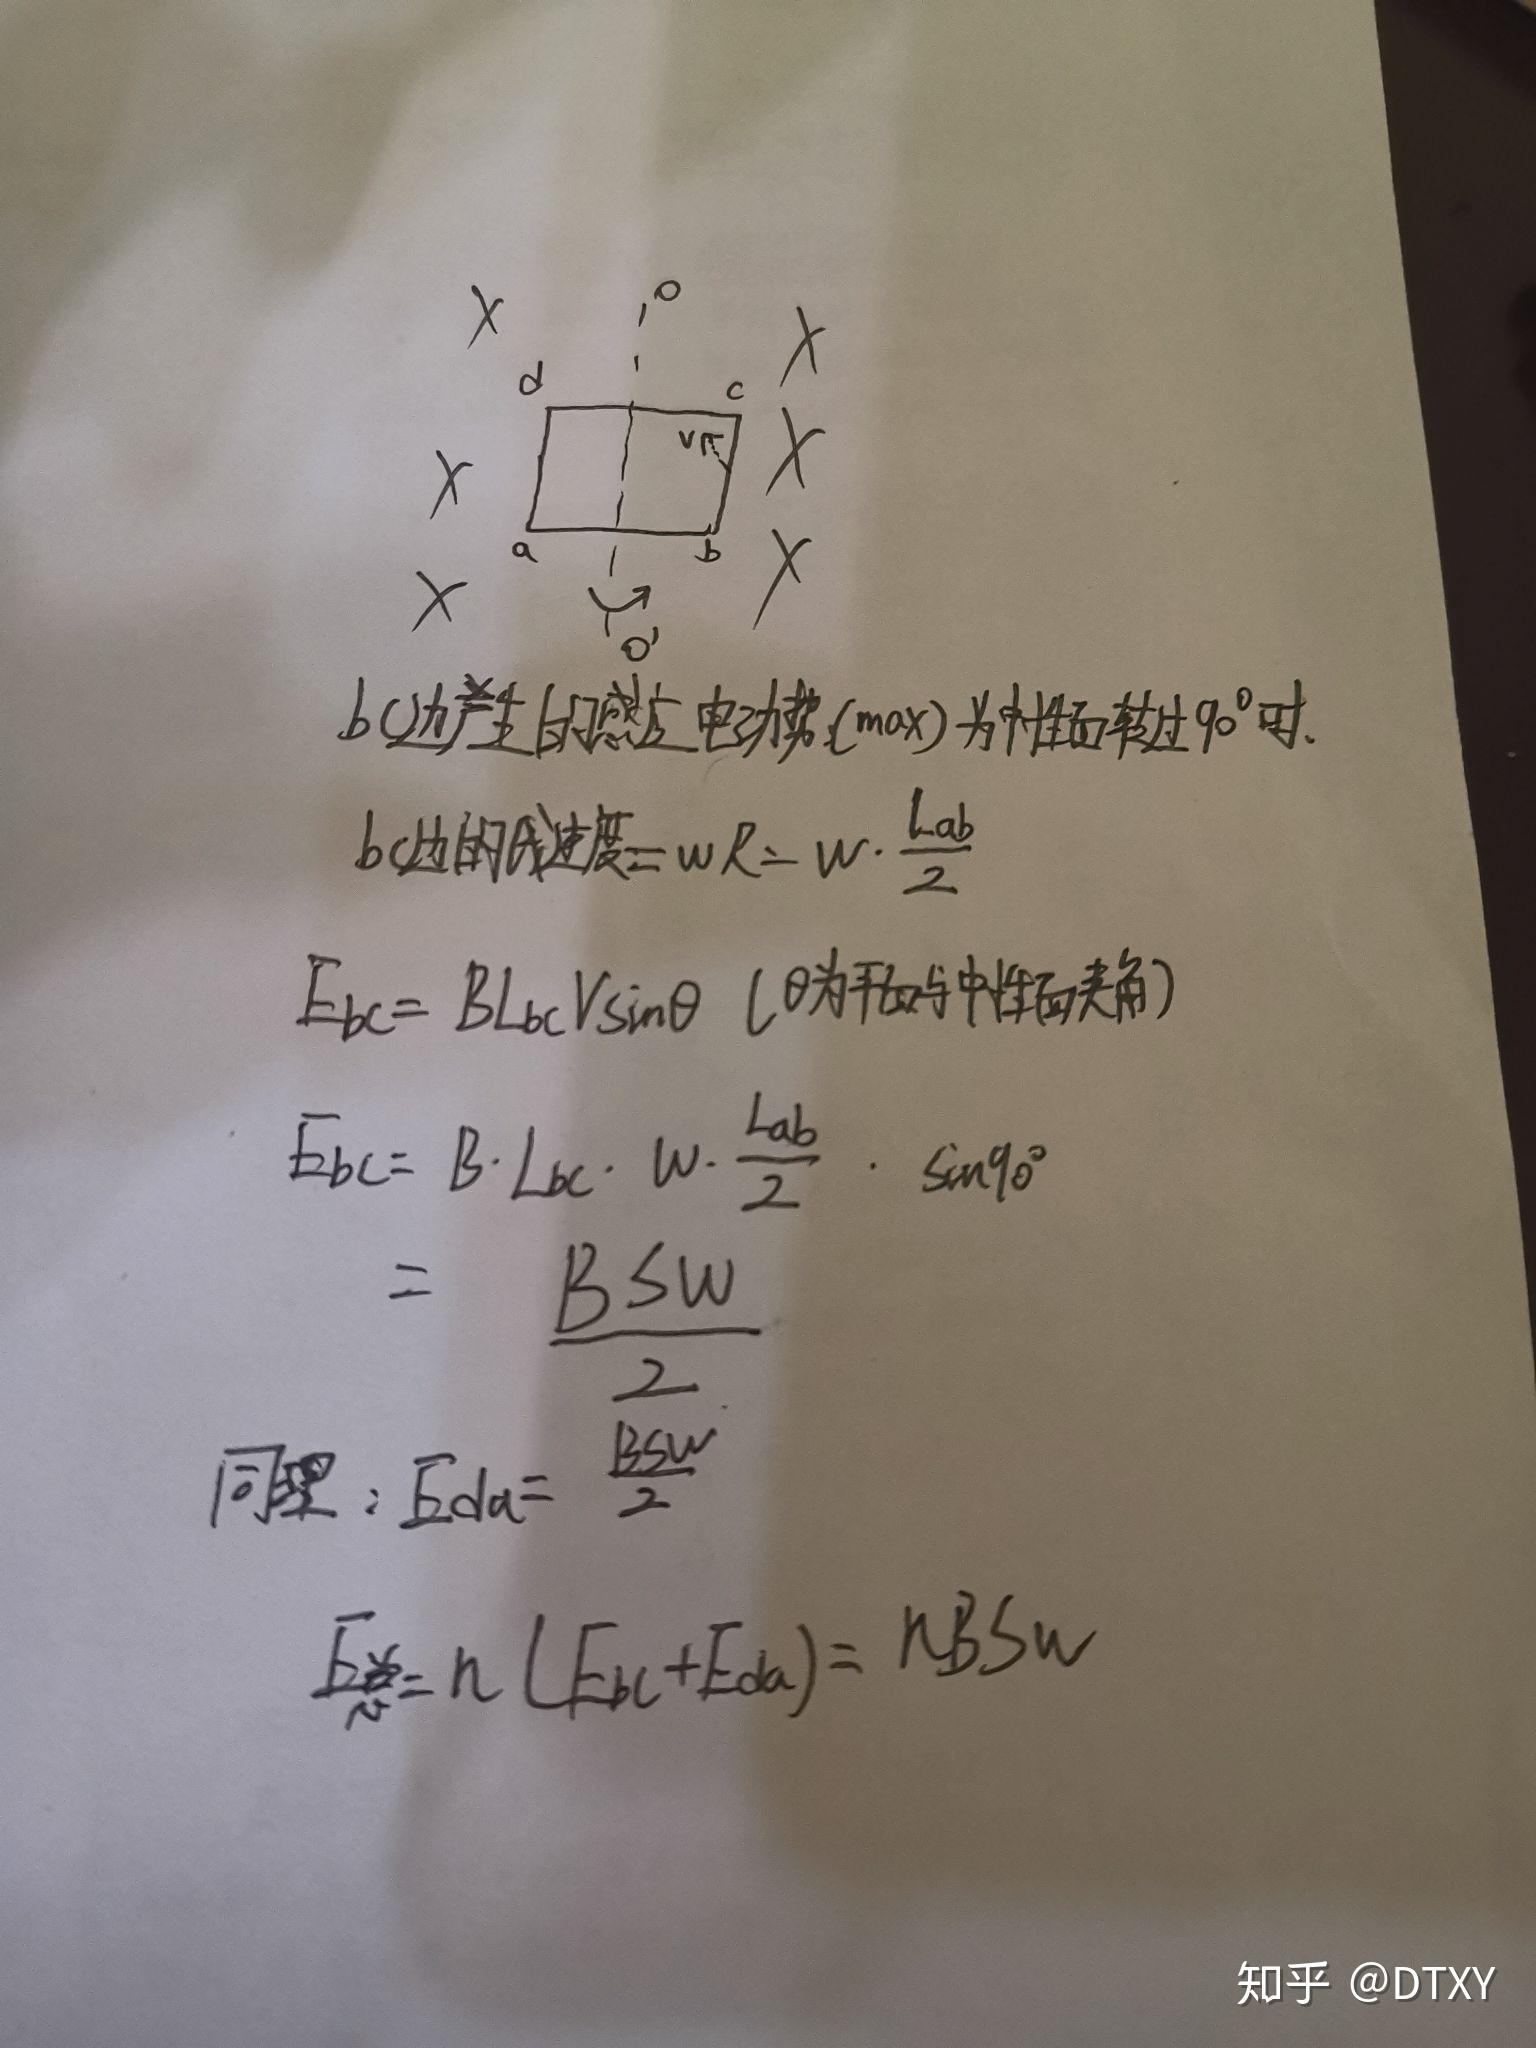 X
O
X
d
c
X
v
X
a
b
X
X
O'
bc边产生的感应电动势(max)为中性面转过90°时.
bc边的线速度=wR=w·Lab/2
Ebc=BLbcVsinθ (θ为平面与中性面夹角)
Ebc=B·Lbc·w·Lab/2·sin90°
=BSW/2
同理:Eda=BSW/2
E总=n(Ebc+Eda)=nBSw
知乎 @DTXY